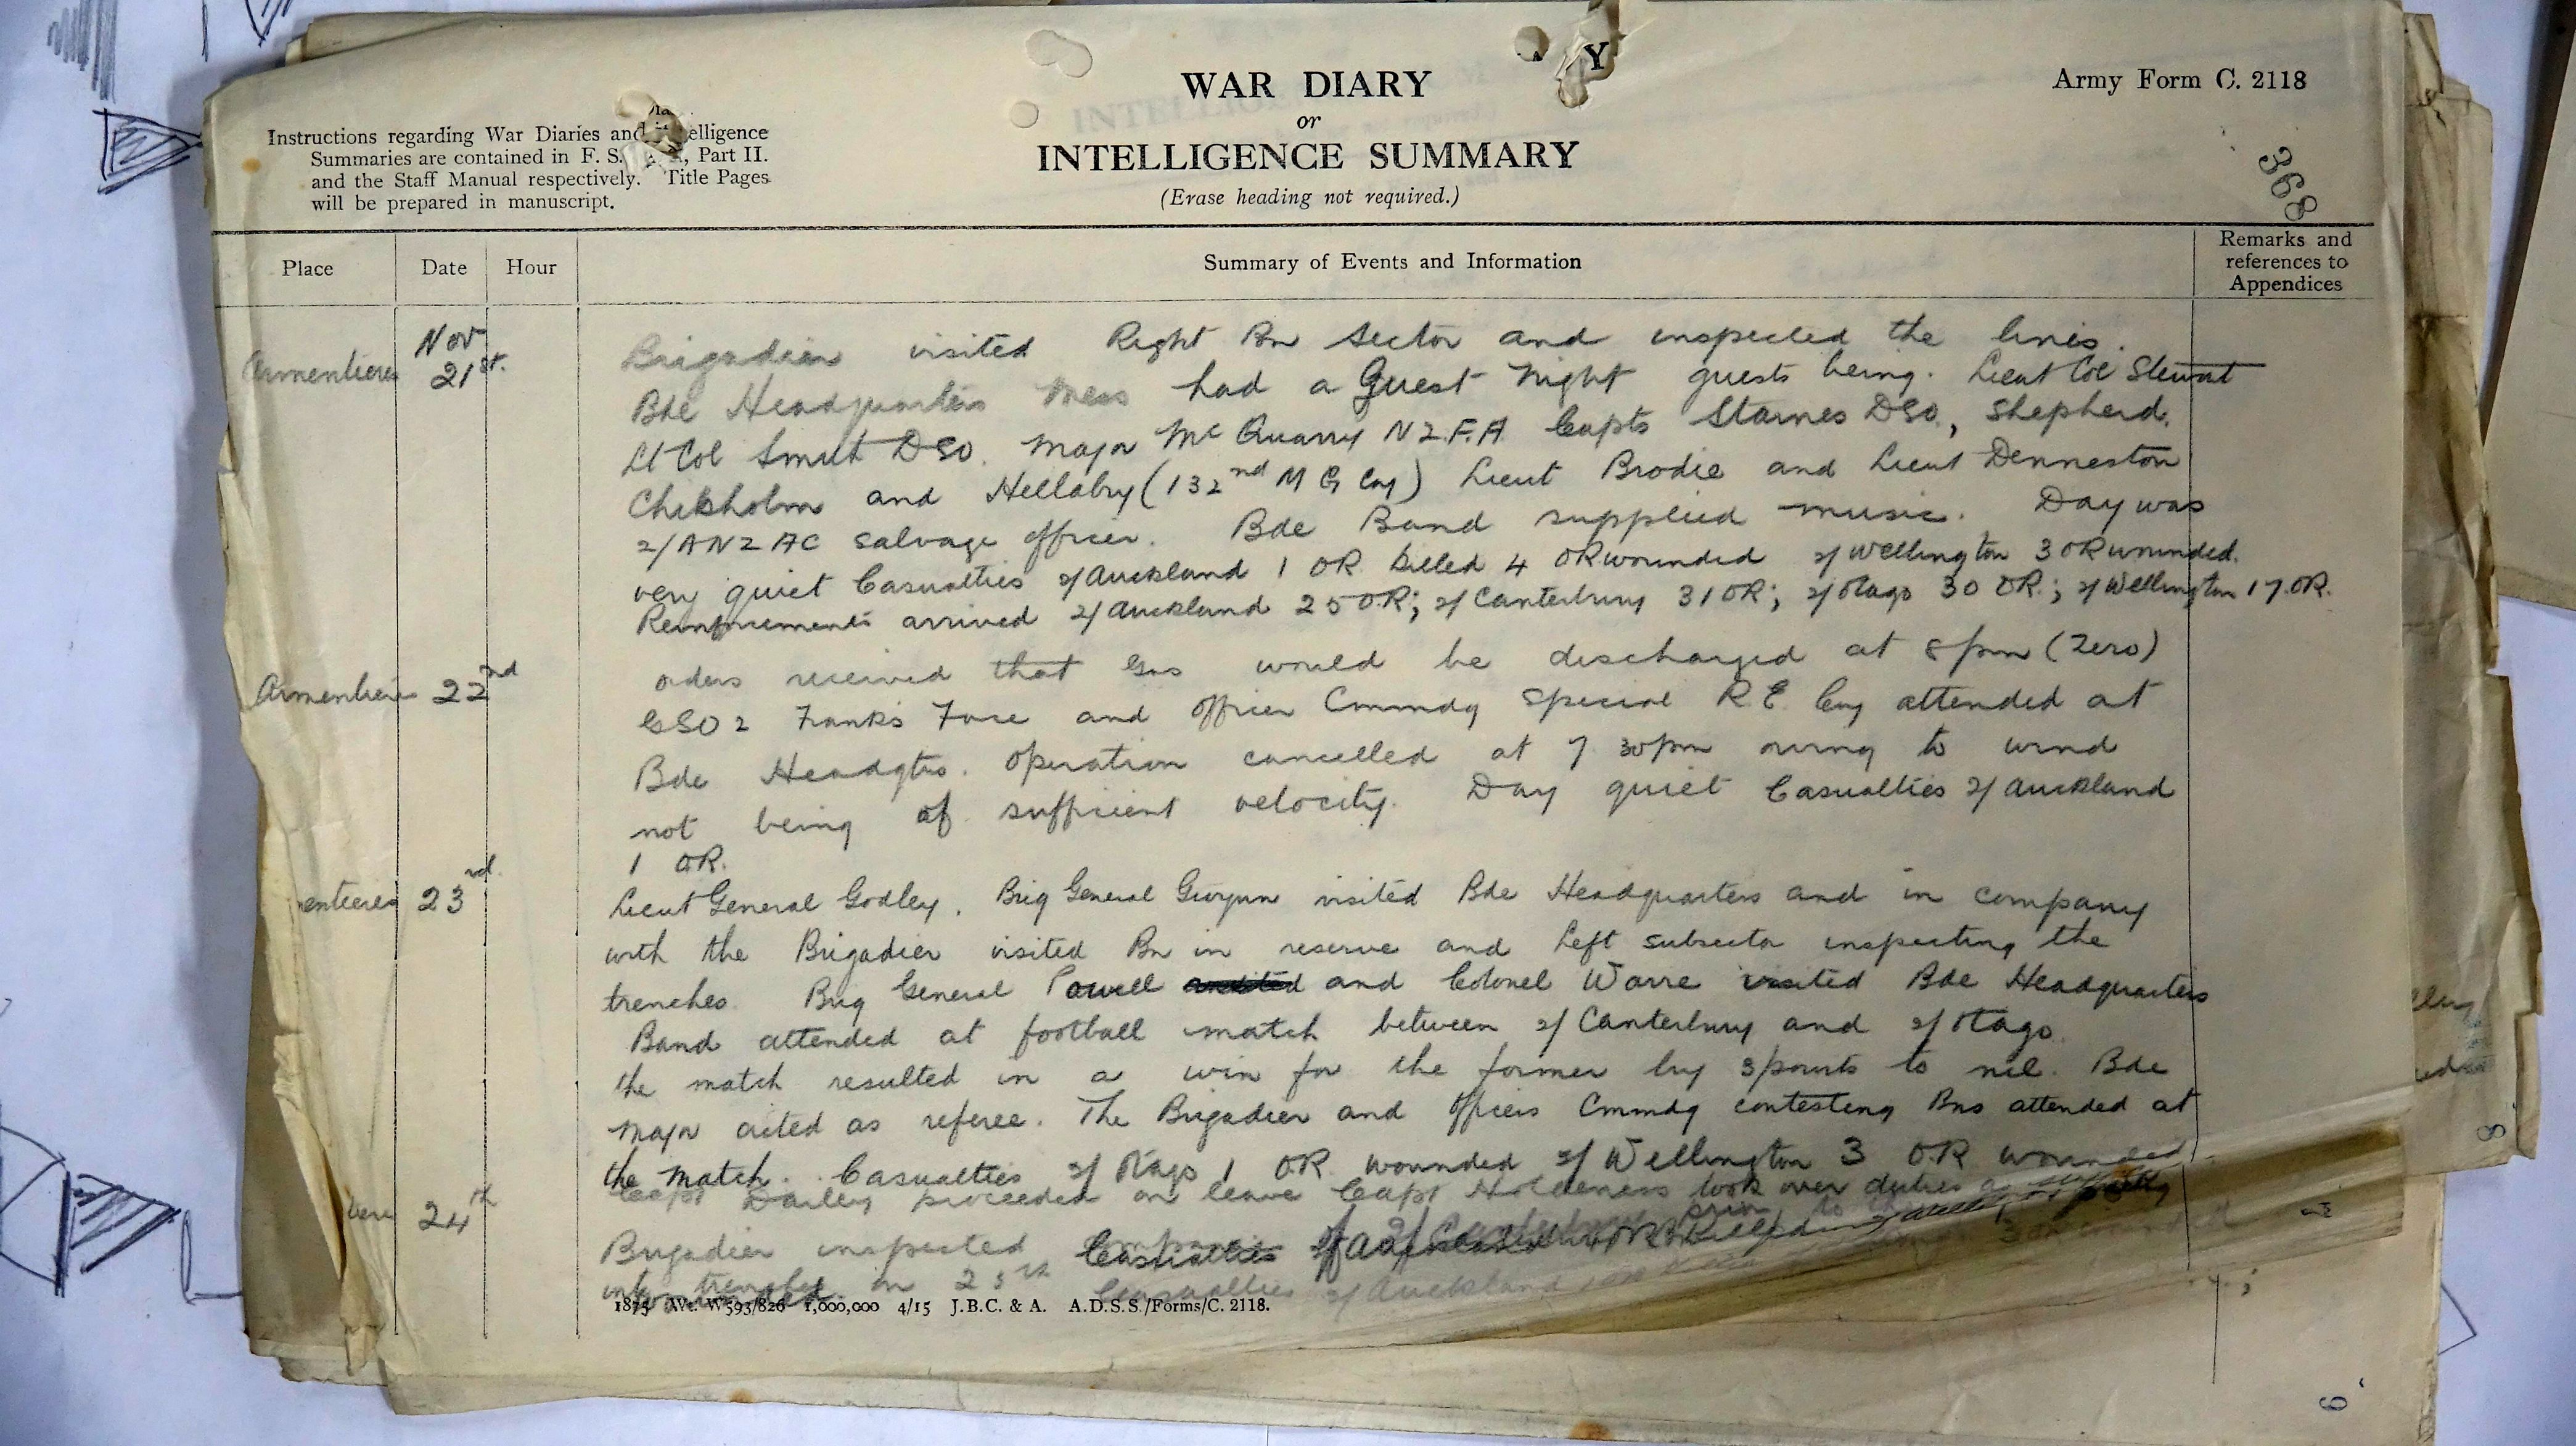 WAR DIARY
or
INTELLIGENCE SUMMARY
(Erase heading not required.)
Army Form C. 2118
368
Instructions regarding War Diaries and elligence
Summaries are contained in F. S. , Part II.
and the Staff Manual respectively. Title Pages
will be prepared in manuscript.
Place Date Hour Summary of Events and Information Remarks and references to Appendices
Armentieres Nov 21st. Brigadier visited Right Bn Sector and inspected the lines.
Bde Headquarters Mess had a Guest Night guests being. Lieut Col Stewart
Lt Col Smith DSO. Major McQuarry NZ.F.A Capts Starnes DSO., Shepherd.
Chisholm and Hellaby (132nd M G Coy) Lieut Brodie and Lieut Denneston
2/ANZAC Salvage officer. Bde Band supplied music. Day was
very quiet Casualties 2/Auckland 1 OR killed 4 OR wounded 2/Wellington 3 OR wounded.
Reinforcements arrived 2/Auckland 25 OR; 2/Canterbury 31 OR; 2/Otago 30 OR.; 2/Wellington 17.OR.
Armentiere 22nd orders received that Gas would be discharged at 8pm (Zero)
GSO2 Franks Force and officer Cmmdg Special R.E. Coy attended at
Bde Headqtrs. Operation cancelled at 7 30pm owing to wind
not being of sufficient velocity. Day quiet Casualties 2/Auckland
1 OR.
entieres 23rd. Lieut General Godley. Brig General Gwynn visited Bde Headquarters and in company
with the Brigadier visited Bn in reserve and Left subsector inspecting the
trenches. Brig General Powell and Colonel Warre visited Bde Headquarters
Band attended at football match between 2/Canterbury and 2/Otago.
the match resulted in a win for the former by 3 points to nil. Bde
Major acted as referee. The Brigadier and Officers Cmmdg contesting Bns attended at
the match. Casualties 2/Otago 1 OR wounded 2/Wellington 3 OR wounded
24th Capt Dailey proceeded on leave Capt Holderness took over duties
Brigadier inspected Casualties
into trenches on 25th Casualties 2/Auckland
1875 Wt. W593/826 1,000,000 4/15 J.B.C. & A. A.D.S.S./Forms/C. 2118.